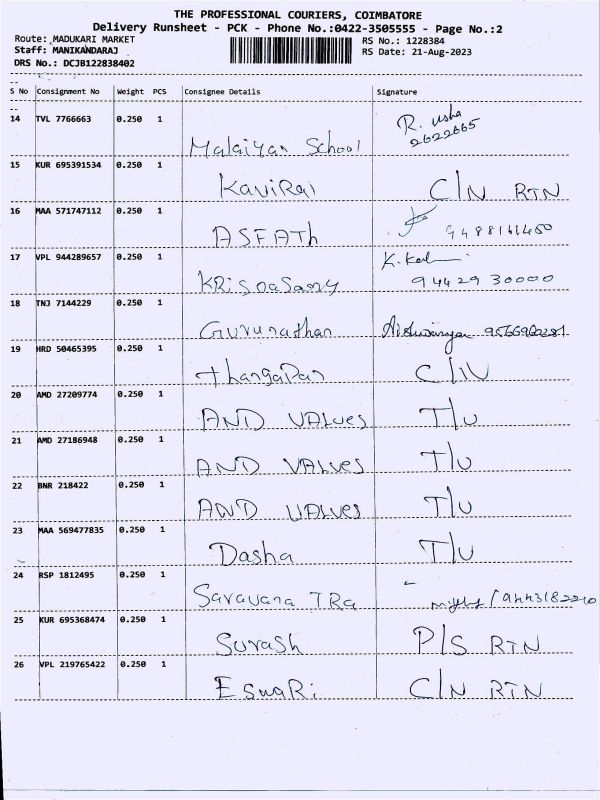 THE PROFESSIONAL COURIERS, COIMBATORE
Delivery Runsheet - PCK - Phone No.:0422-3505555 - Page No.:2
Route: MADUKARI MARKET
RS No.: 1228384
Staff: MANIKANDARAJ
RS Date: 21-Aug-2023
DRS No.: DCJB122838402
S No Consignment No Weight PCS Consignee Details Signature
14 TVL 7766663 0.250 1
R. Usha
2622665
Malaiyan School
15 KUR 695391534 0.250 1
KaviRaj C/N RTN
16 MAA 571747112 0.250 1
ASFATh 9488161450
17 VPL 944289657 0.250 1
KRisnaSamy 9442930000
18 TNJ 7144229 0.250 1
Gurunathan Aishwarya
19 HRD 50465395 0.250 1
thangaPan
20 AMD 27209774 0.250 1
AND VALUes T/U
21 AMD 27186948 0.250 1
AND VALUes T/U
22 BNR 218422 0.250 1
AND VALUes T/U
23 MAA 569477835 0.250 1
Dasha T/U
24 RSP 1812495 0.250 1
Saravana TRa
25 KUR 695368474 0.250 1
Surash P/S RTN
26 VPL 219765422 0.250 1
EswaRi C/N RTN